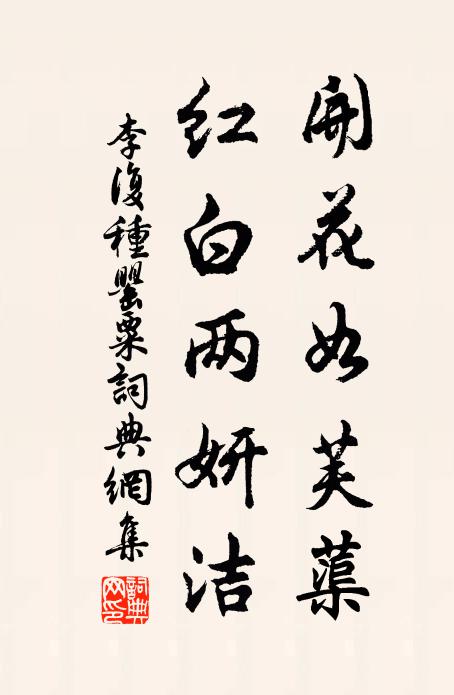 開花如芙蕖
紅白两妍洁
李復種罌粟詞典網集
詞典网印